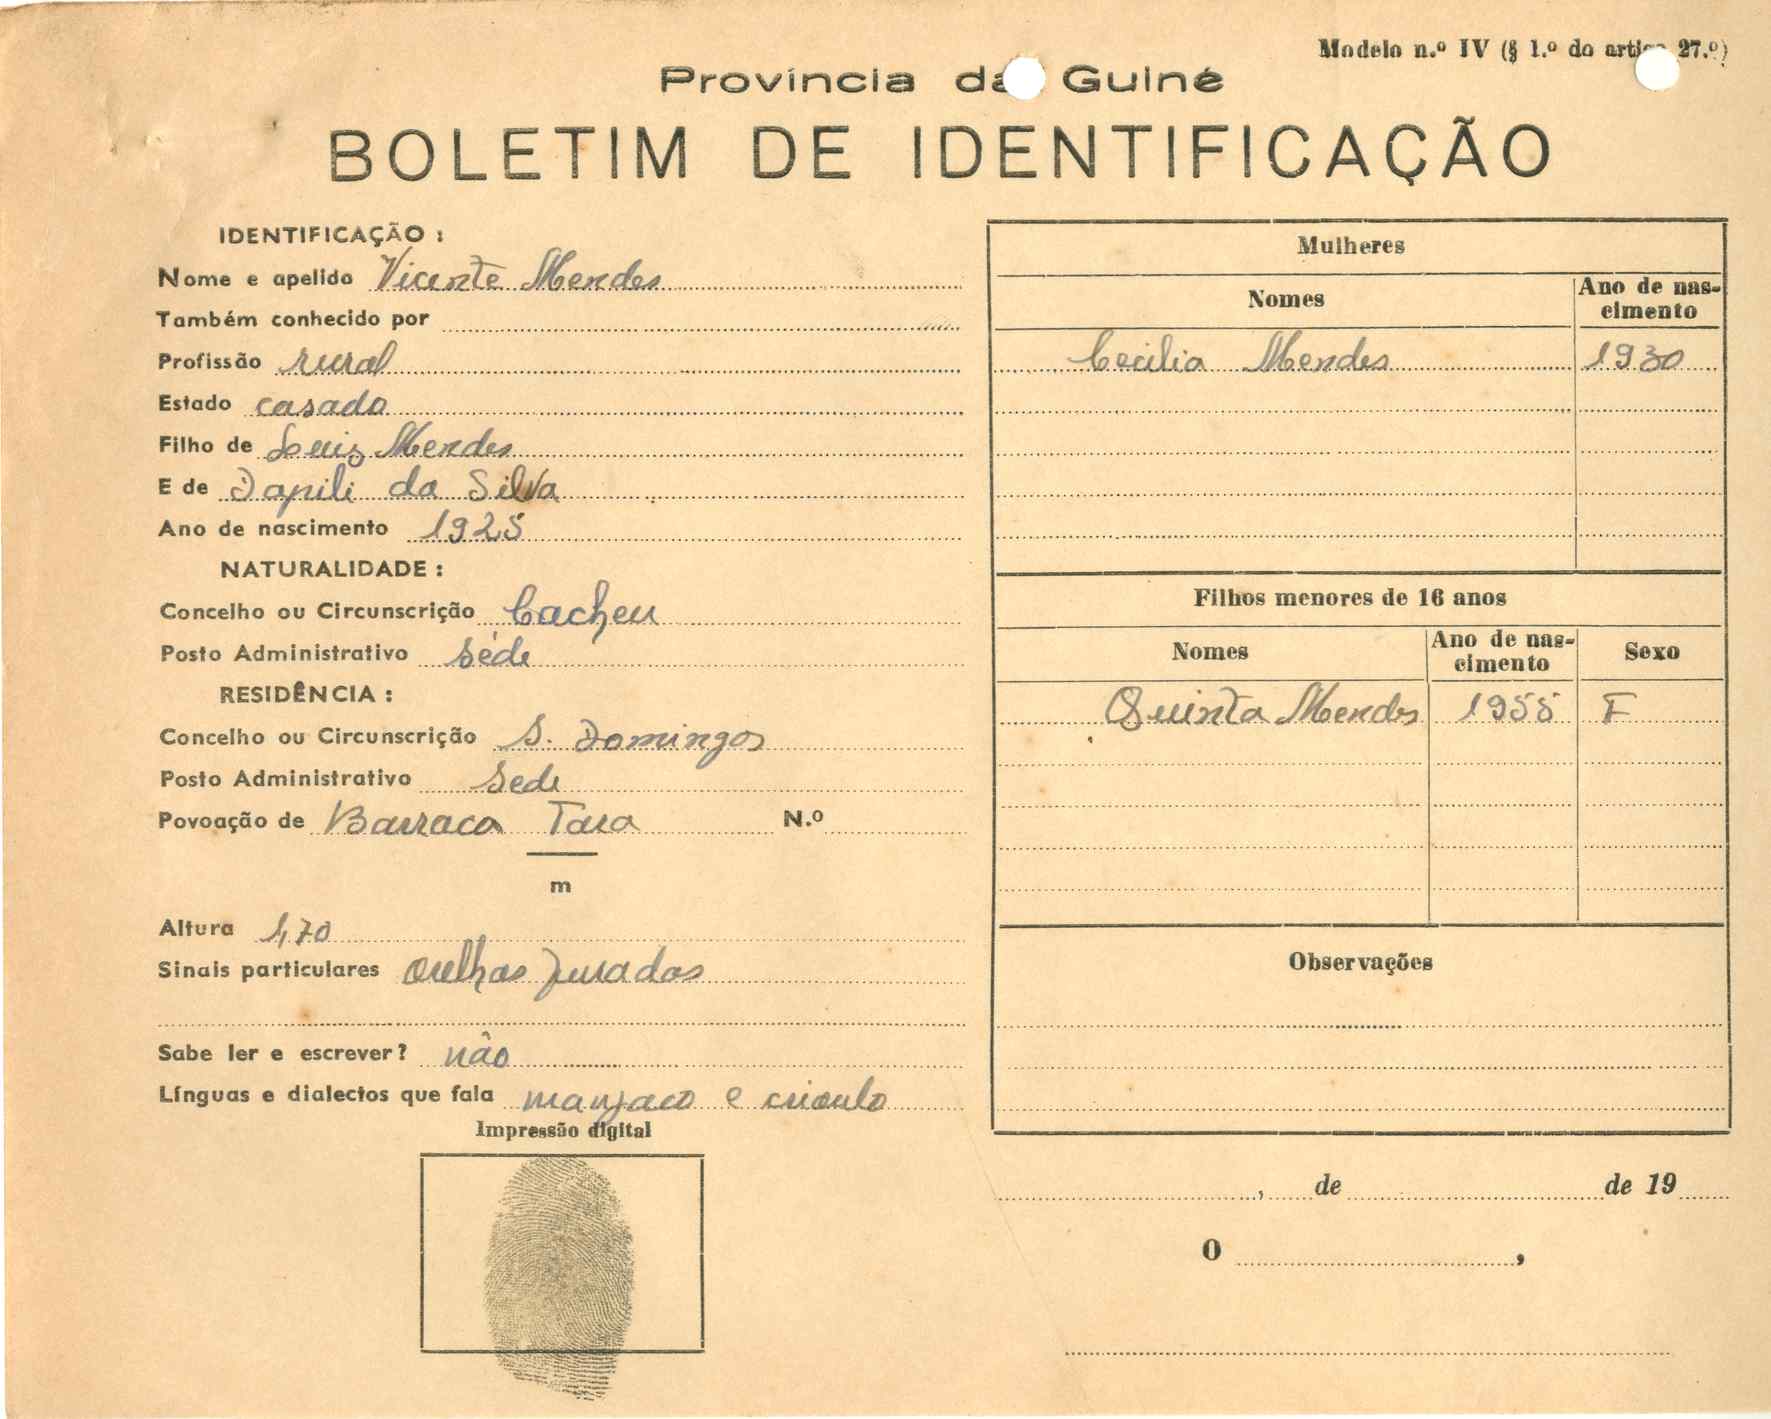 Modelo n.º IV (§ 1.º do artigo 27.º)
Província da Guiné
BOLETIM DE IDENTIFICAÇÃO
IDENTIFICAÇÃO :
Nome e apelido Vicente Mendes
Também conhecido por
Profissão rural
Estado casado
Filho de Luiz Mendes
E de Japili da Silva
Ano de nascimento 1925
NATURALIDADE :
Concelho ou Circunscrição Cacheu
Posto Administrativo Séde
RESIDÊNCIA :
Concelho ou Circunscrição S. Domingos
Posto Administrativo Sede
Povoação de Barraca Tara N.º
m
Altura 1,70
Sinais particulares orelhas furadas
Sabe ler e escrever? não
Línguas e dialectos que fala manjaco e crioulo
Impressão digital
Mulheres
Nomes Ano de nas-
cimento
Cecilia Mendes 1930
Filhos menores de 16 anos
Nomes Ano de nas-
cimento Sexo
Quinta Mendes 1955 F
Observações
, de de 19
O ,